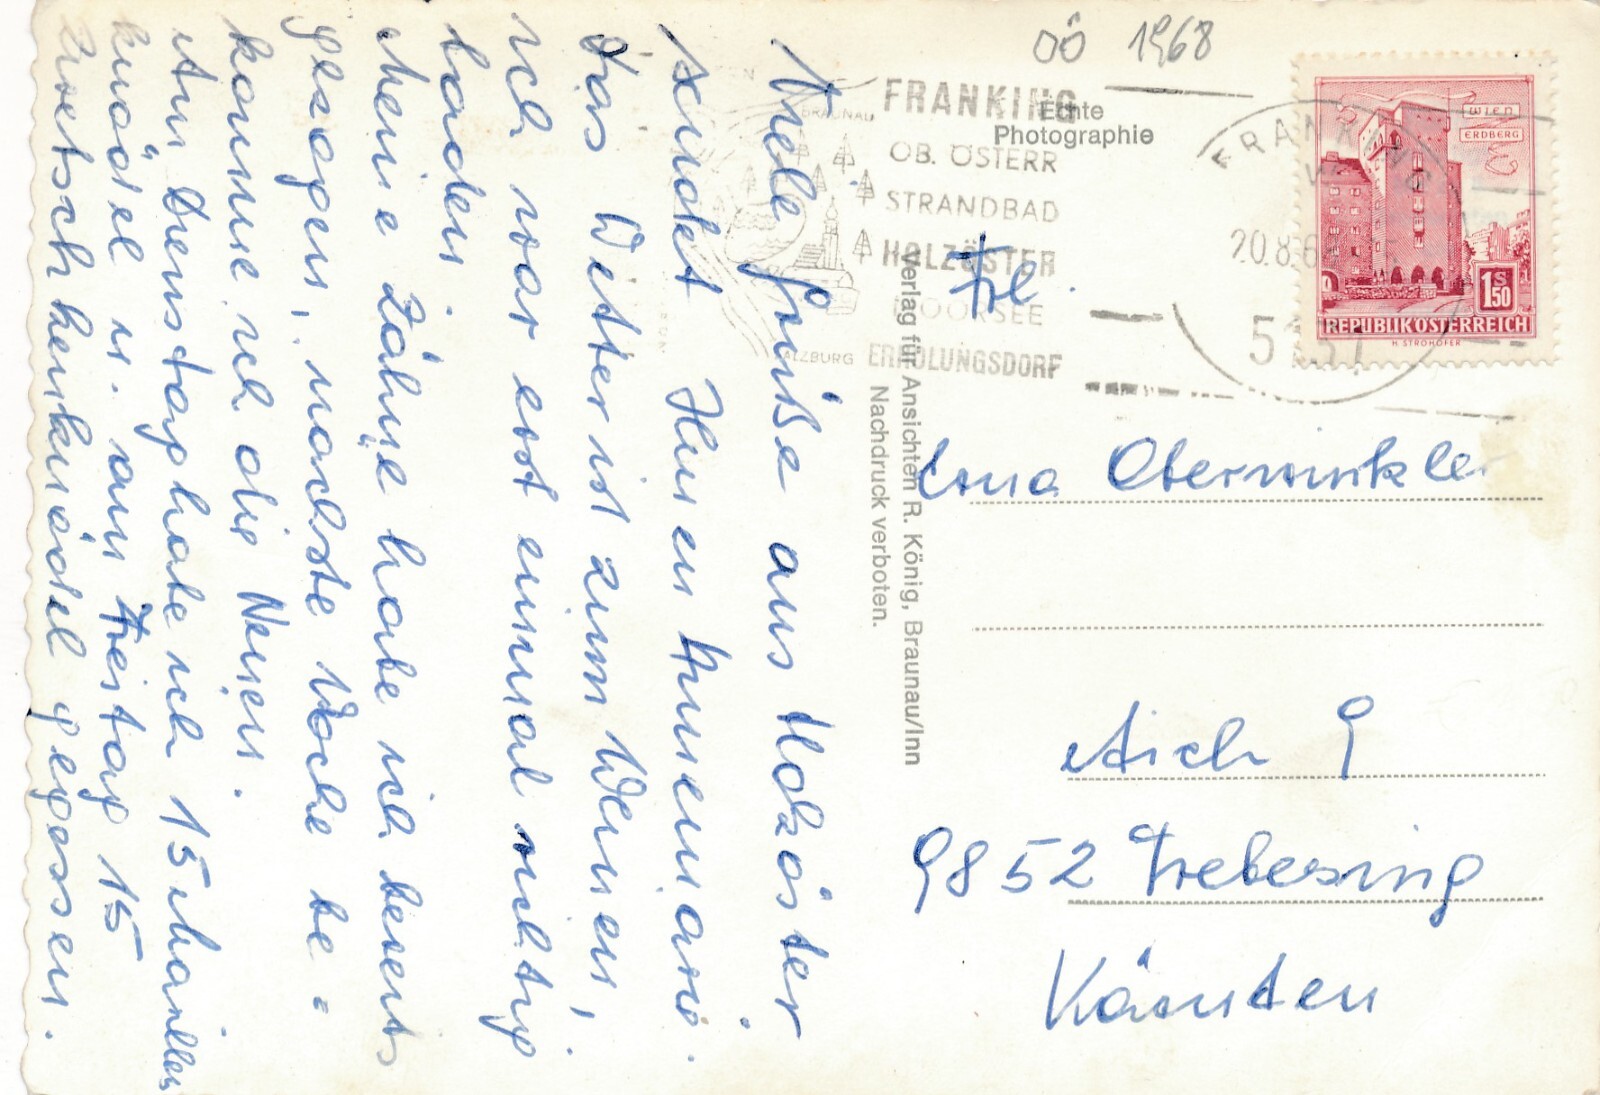 OÖ 1968
FRANKING
OB. ÖSTERR
STRANDBAD
HOLZÖSTER
MOORSEE
ERHOLUNGSDORF
BRAUNAU
SALZBURG
Echte
Photographie
FRANKING
20.8.6
5131
WIEN
ERDBERG
1 S 50
REPUBLIK ÖSTERREICH
H. STROHOFER
Viele Grüße aus Holzöster
sendet Ihnen Annemarie.
Das Wetter ist zum Weinen,
ich war erst einmal richtig
baden.
Meine Zähne habe ich bereits
gezogen, nächste Woche be=
komme ich die Neuen.
Am Dienstag habe ich 15 Marillen
knödel u. am Freitag 15
Zwetschkenknödel gegessen.
Verlag für Ansichten R. König, Braunau/Inn
Nachdruck verboten.
Frl.
Erna Oberwinkler
Aich 9
9852 Trebesing
Kärnten